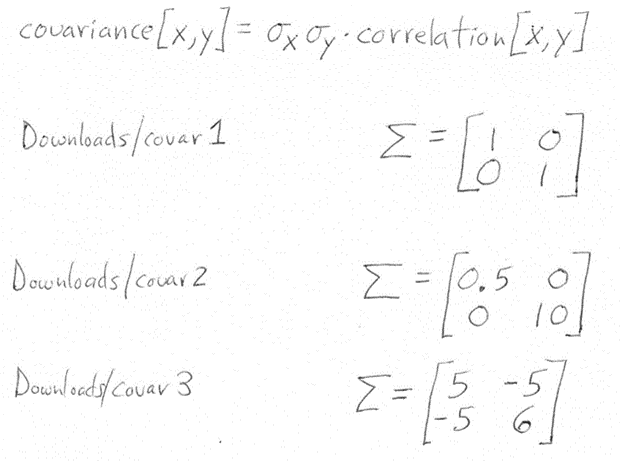 covariance[x,y] = σx σy · correlation[x,y]
Downloads/covar 1 Σ = [1 0
0 1]
Downloads/covar 2 Σ = [0.5 0
0 10]
Downloads/covar 3 Σ = [5 -5
-5 6]